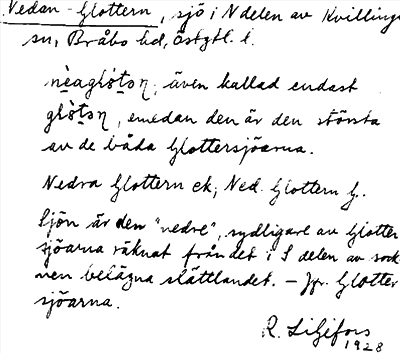 Nedan-Glottern, sjö i N delen av Kvillinge
sn, Bråbo hd, Östgtl. l.
nèaglòtəɳ, även kallad endast
glòtəɳ, emedan den är den största
av de båda Glottersjöarna.
Nedra Glottern ek; Ned. Glottern G.
Sjön är den "nedre", sydligare av Glotter
sjöarna räknat från det i S delen av sock
nen belägna slättlandet. – Jfr Glotter
sjöarna.
R. Liljefors
1928